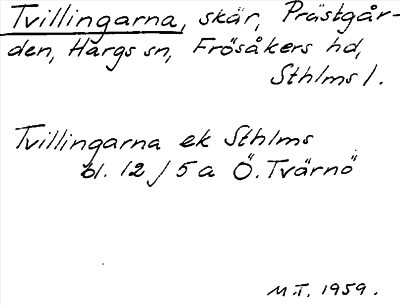 Tvillingarna, skär, Prästgår-
den, Hargs sn, Frösåkers hd,
Sthlms l.
Tvillingarna ek Sthlms
bl. 12 / 5 a Ö. Tvärnö
M.T. 1959.